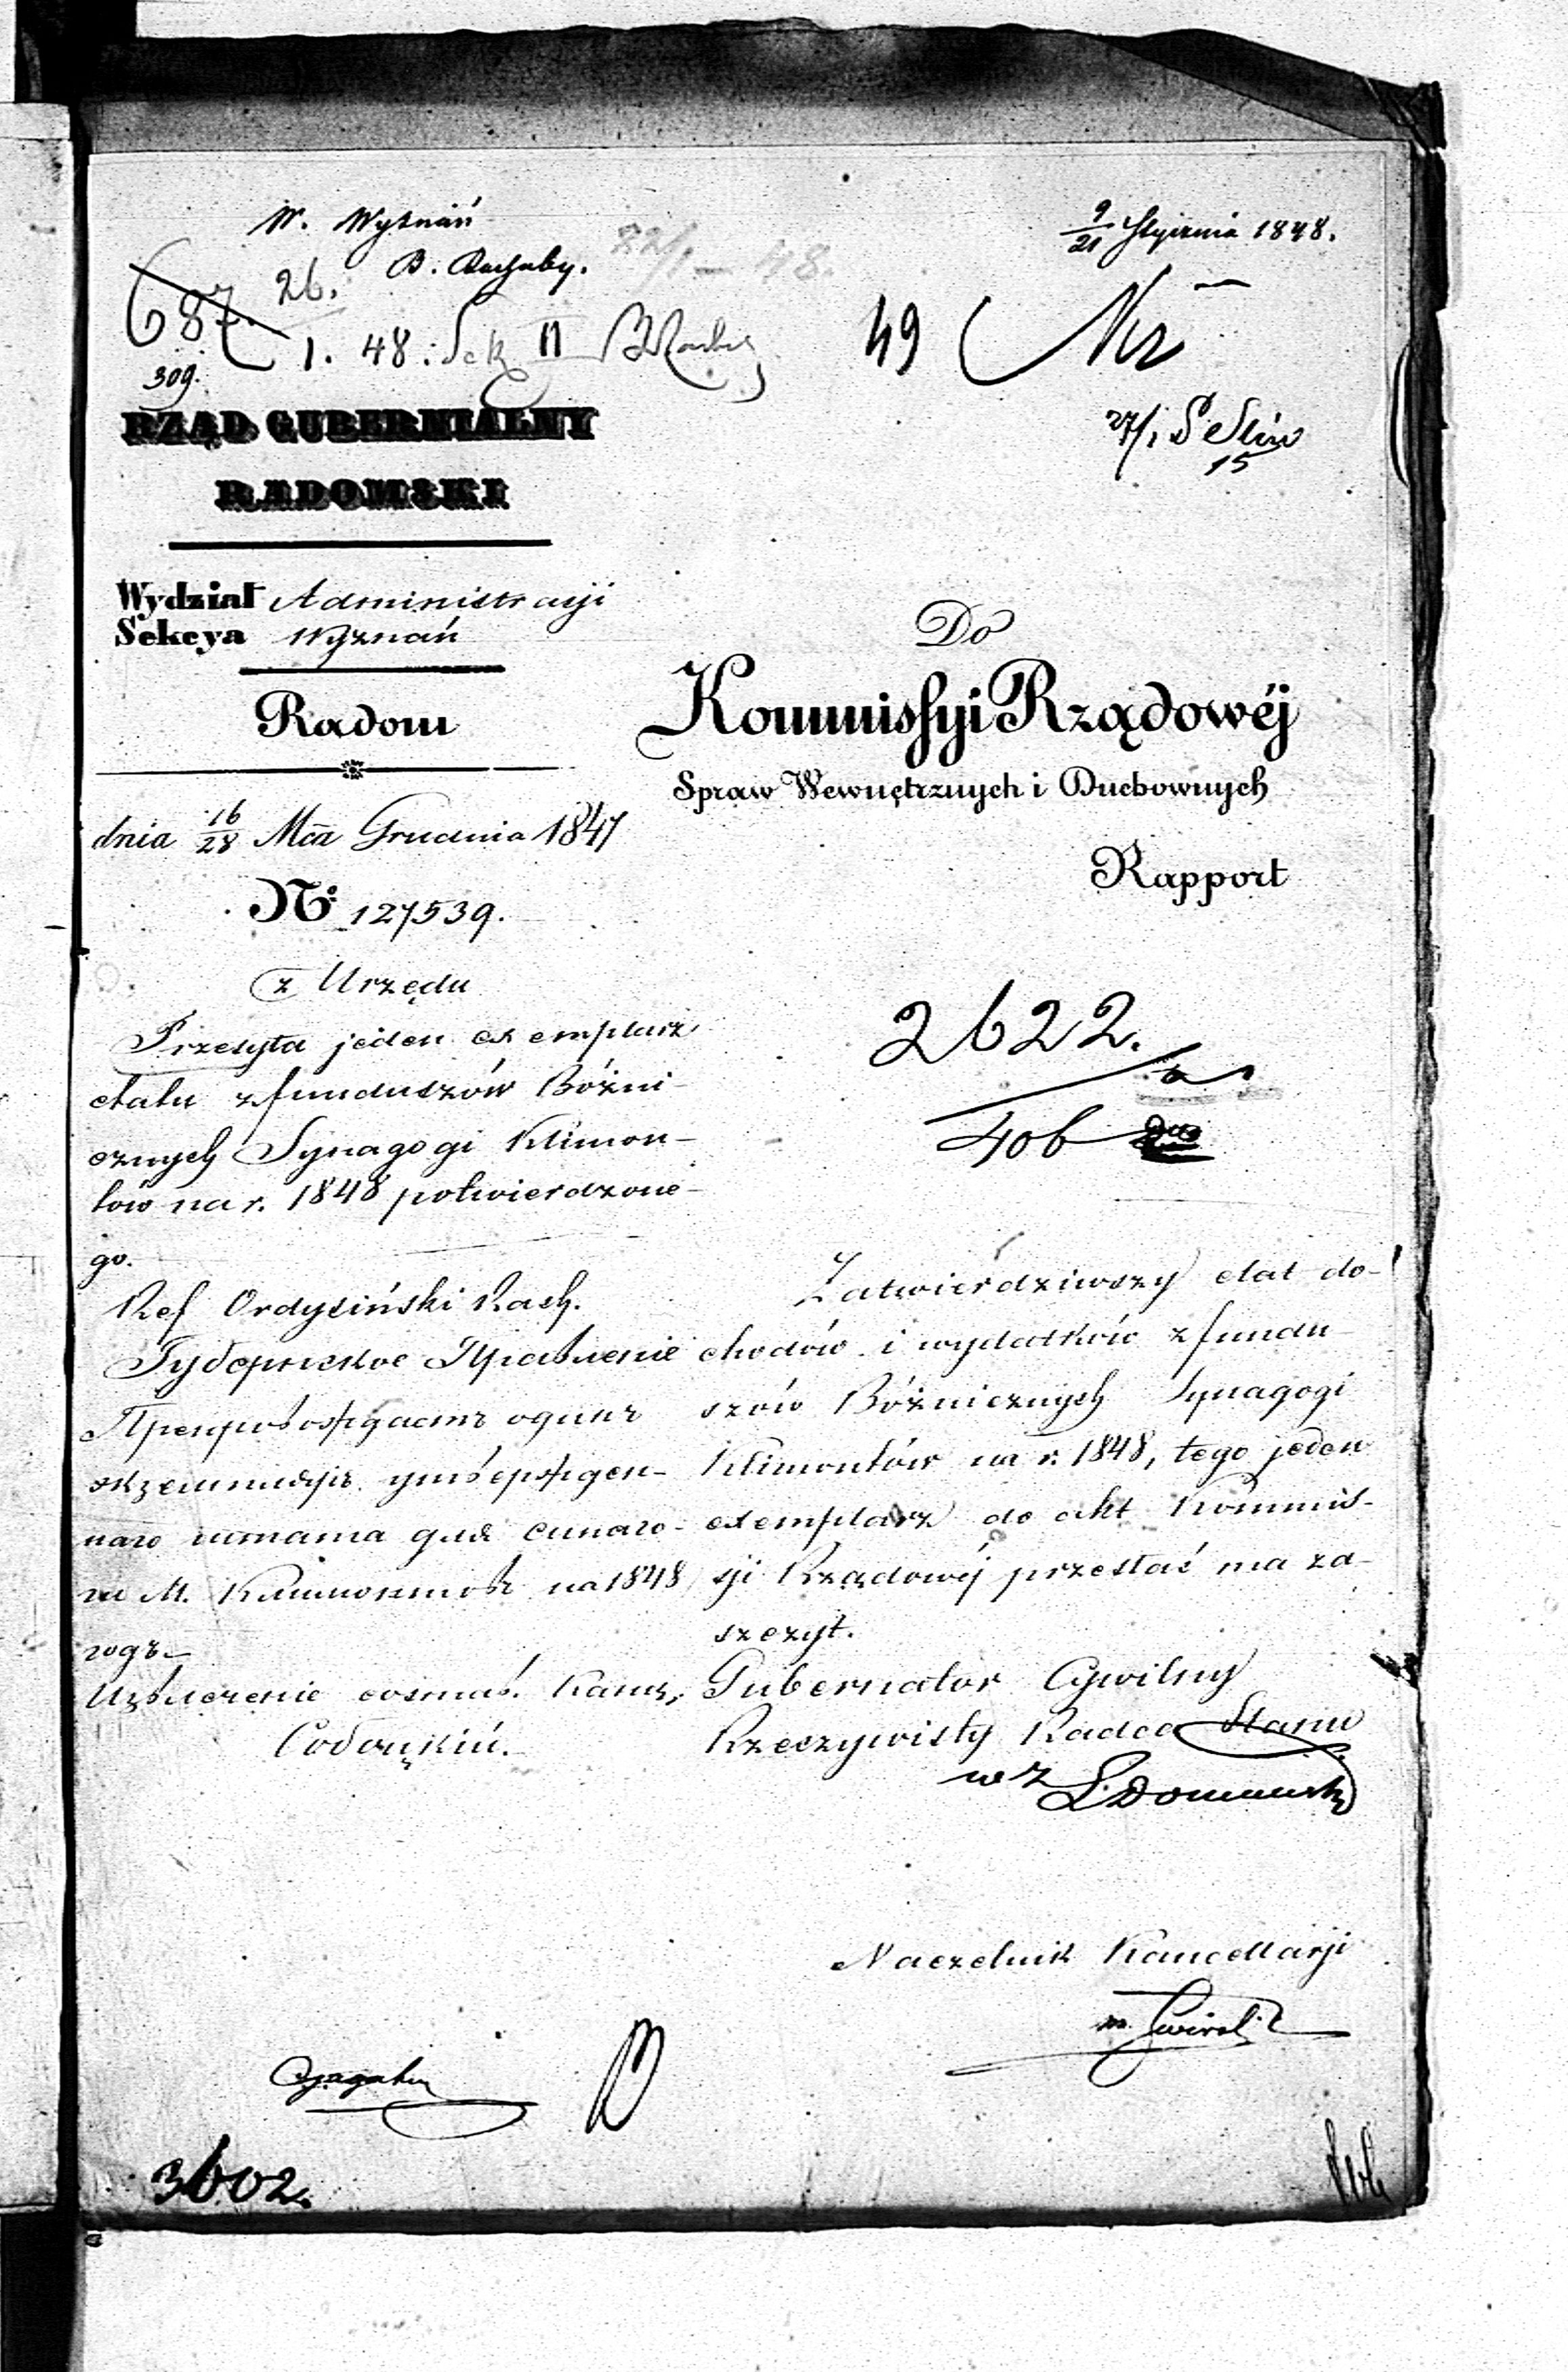 W. Wyznań
9/21 Stycznia 1848.
B. Rachuby.
22/1 – 48.
687.
26.
1. 48. Sek II B Rachuby
49
Nr
309.
27/1
15
RZĄD GUBERNIALNY
RADOMSKI
Wydział Administracyi
Sekcya Wyznań
Radom
dnia 16/28 Mca Grudnia 1847
No 127539.
Do
Kommissyi Rządowéj
Spraw Wewnętrznych i Duchownych
Rapport
z Urzędu
Przesyła jeden exemplarz
etatu z funduszów Bóżni-
cznych Synagogi Klimon-
tów na r. 1848 potwierdzone-
go.
Ref Ordysiński Rach.
Губернское Правленіе
Препровождаетъ одинъ
экземпляръ утвержден-
наго штата для синаго-
ги М. Климонтовъ на 1848
годъ.
Извлеченіе состав. Канц.
2622.
406
Zatwierdziwszy etat do-
chodów i wydatków z fundu-
szów Bóżnicznych Synagogi
Klimontów na r. 1848, tego jeden
exemplarz do akt Kommis-
syi Rządowéj przesłać ma za-
szczyt.
Gubernator Cywilny
Rzeczywisty Radca Stanu
w z
Naczelnik Kancellarji
3602.